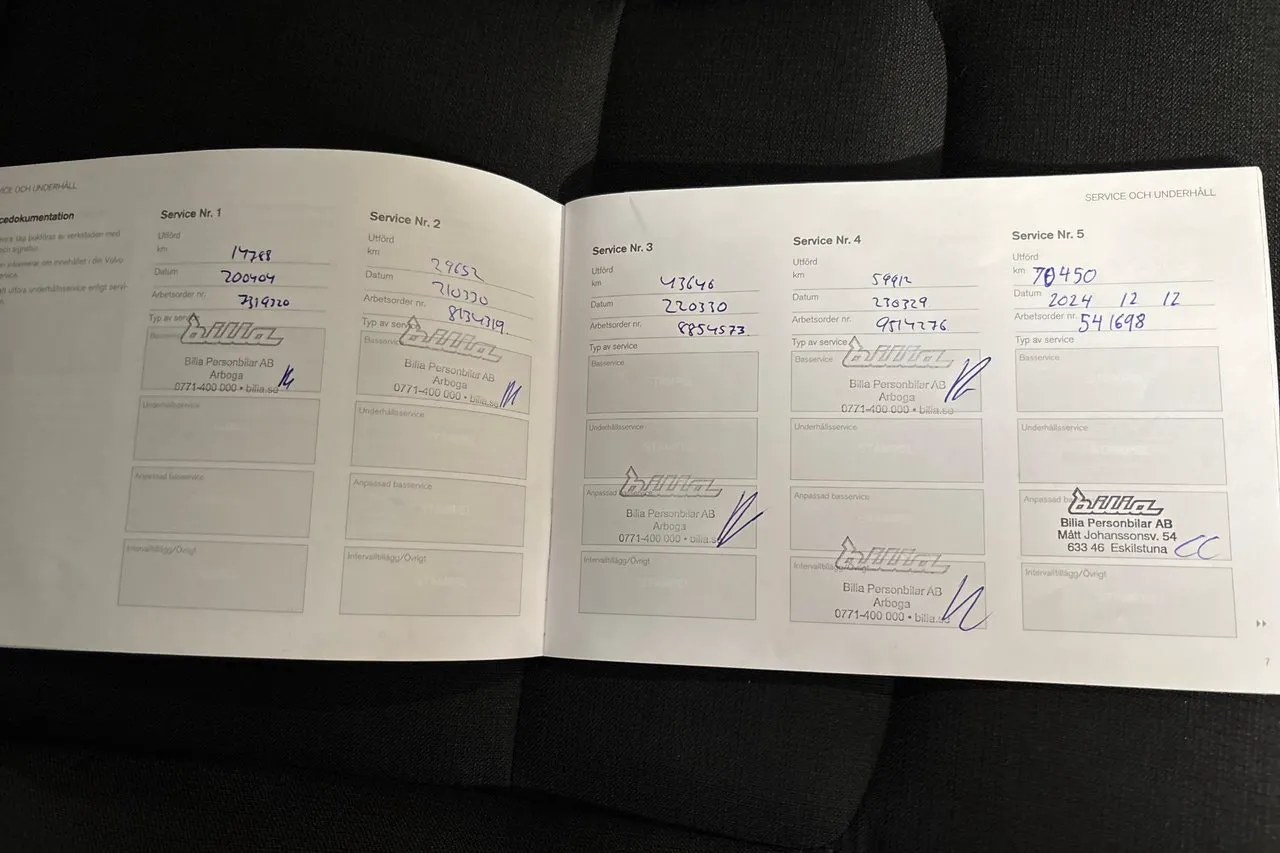 SERVICE OCH UNDERHÅLL
cedokumentation
Service Nr. 1
Utförd
km 14788
Datum 200404
Arbetsorder nr. 7319320
Typ av service
bilia
Billia Personbilar AB
Arboga
0771-400 000 • bilia.se
Underhållsservice
Anpassad basservice
Intervalltillägg/Övrigt
Service Nr. 2
Utförd
km 29652
Datum 210330
Arbetsorder nr. 8134319
Typ av service
Basservice
bilia
Bilia Personbilar AB
Arboga
0771-400 000 • bilia.se
Underhållsservice
Anpassad basservice
Intervalltillägg/Övrigt
SERVICE OCH UNDERHÅLL
Service Nr. 3
Utförd
km 43646
Datum 220330
Arbetsorder nr. 8854573
Typ av service
Basservice
Underhållsservice
Anpassad
bilia
Bilia Personbilar AB
Arboga
0771-400 000 • bilia.se
Intervalltillägg/Övrigt
Service Nr. 4
Utförd
km 59912
Datum 230329
Arbetsorder nr. 9514276
Typ av service
Basservice
bilia
Bilia Personbilar AB
Arboga
0771-400 000 • bilia.se
Underhållsservice
Anpassad basservice
Intervalltillägg/Övrigt
bilia
Bilia Personbilar AB
Arboga
0771-400 000 • bilia.se
Service Nr. 5
Utförd
km 70450
Datum 2024 12 12
Arbetsorder nr. 541698
Typ av service
Basservice
Underhållsservice
Anpassad ba
bilia
Bilia Personbilar AB
Mått Johanssonsv. 54
633 46 Eskilstuna CC
Intervalltillägg/Övrigt
7